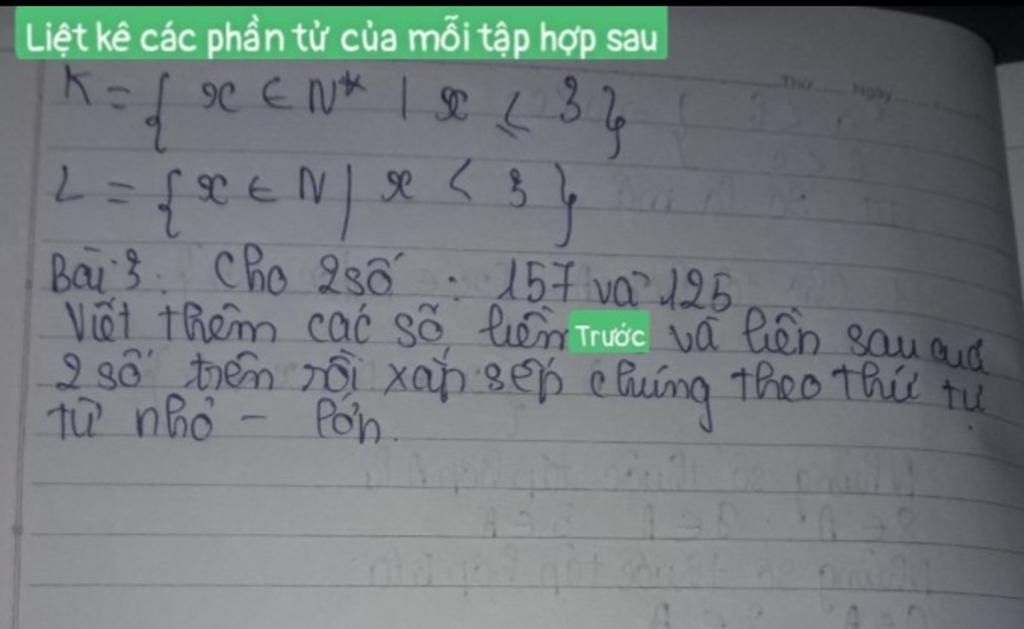 Liệt kê các phần tử của mỗi tập hợp sau
Thứ Ngày
K = { x ∈ N* | x ≤ 3 }
L = { x ∈ N | x < 3 }
Bài 3: Cho 2 số : 157 và 125
Viết thêm các số liền Trước và liền sau của
2 số trên rồi xắp sếp chúng theo thứ tự
từ nhỏ - lớn.